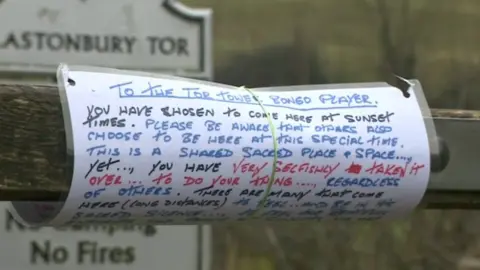 LASTONBURY TOR
TO THE TOR TOWER BONGO PLAYER.
YOU HAVE CHOSEN TO COME HERE AT SUNSET
TIMES. PLEASE BE AWARE THAT OTHERS ALSO
CHOOSE TO BE HERE AT THIS SPECIAL TIME.
THIS IS A SHARED SACRED PLACE & SPACE...,
YET..., YOU HAVE VERY SELFISHLY TAKEN IT
OVER... TO DO YOUR THING...., REGARDLESS
OF OTHERS. THERE ARE MANY THAT COME
HERE (LONG DISTANCES) TO FEEL.. AND BE IN
SACRED SILENCE....
No Camping
No Fires